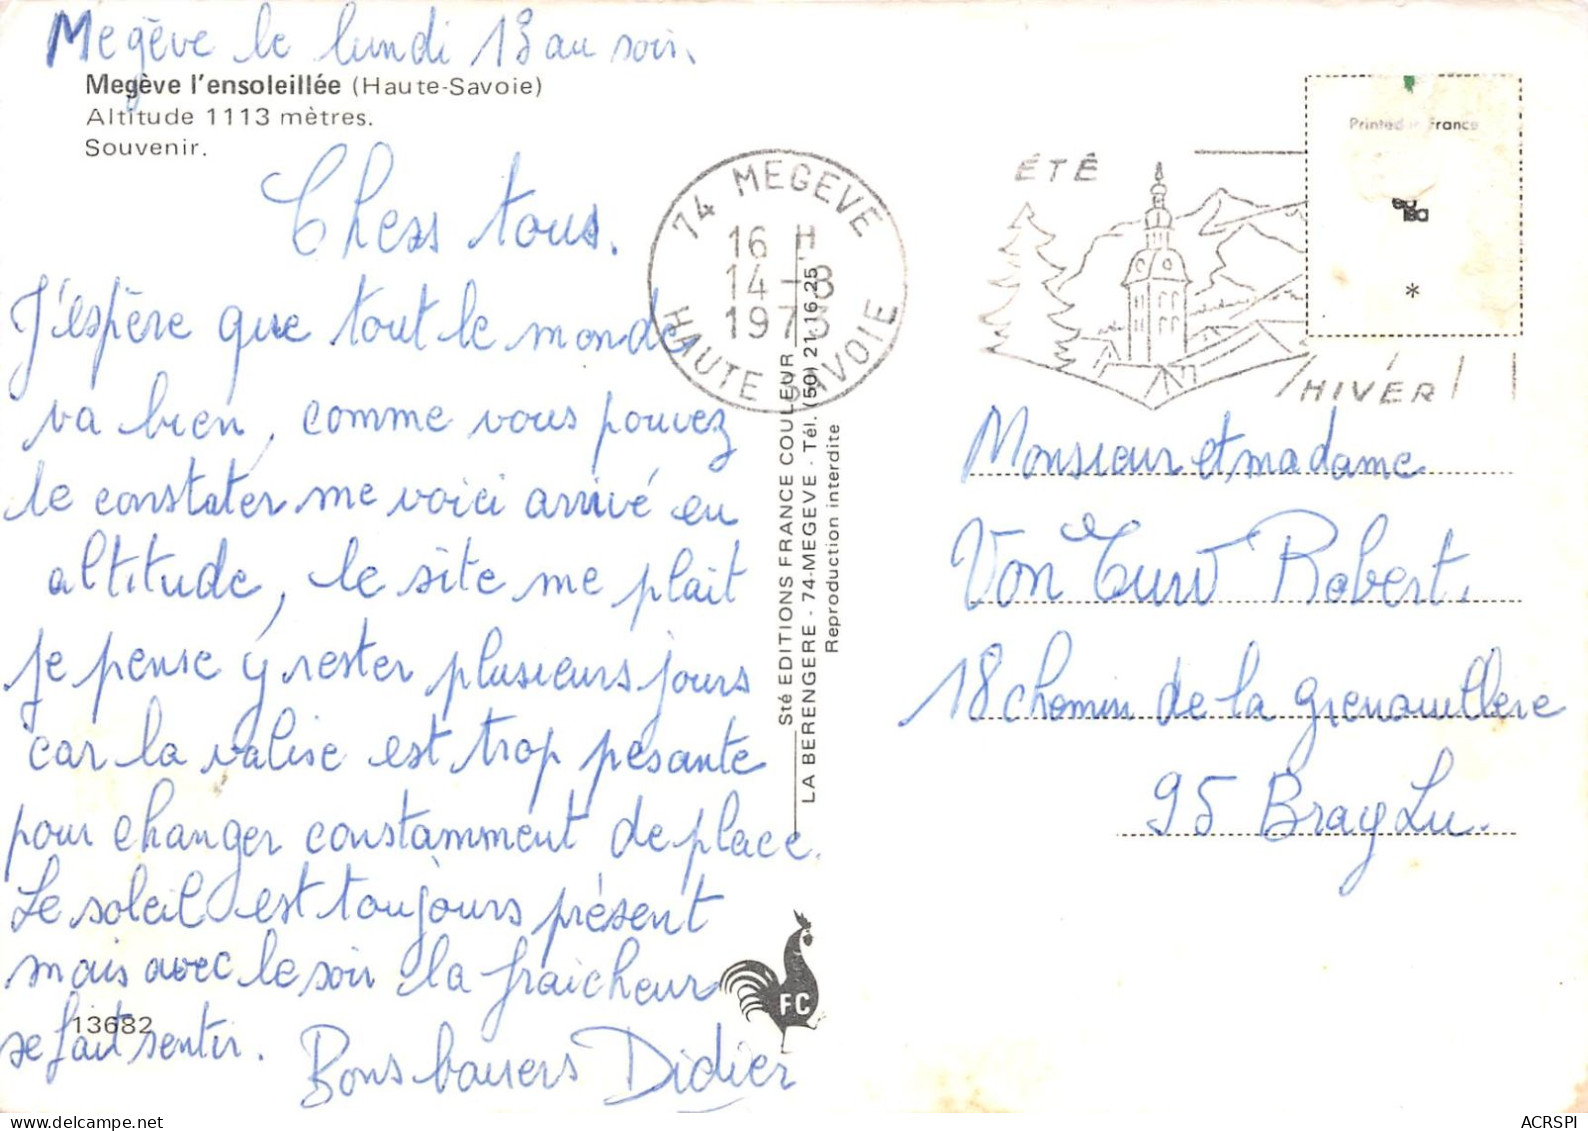 Megève le lundi 13 au soir.
Megève l'ensoleillée (Haute-Savoie)
Altitude 1113 mètres.
Souvenir.
Chers tous.
J'espère que tout le monde
va bien, comme vous pouvez
le constater me voici arrivé en
altitude, le site me plait
je pense y rester plusieurs jours
car la valise est trop pesante
pour changer constamment de place.
Le soleil est toujours présent
mais avec le soir la fraicheur
se fait sentir.
Bons baisers Didier
13682
74 MEGEVE
16 H
14-8
1973
HAUTE SAVOIE
Sté EDITIONS FRANCE COULEUR
LA BERENGERE - 74-MEGEVE - Tél. (50) 21.16.25
Reproduction interdite
FC
ÉTÉ
HIVER
Printed in France
*
Monsieur et madame
Von Robert.
18 chemin de la grenouillere
95 Bray Lu.
ACRSPI